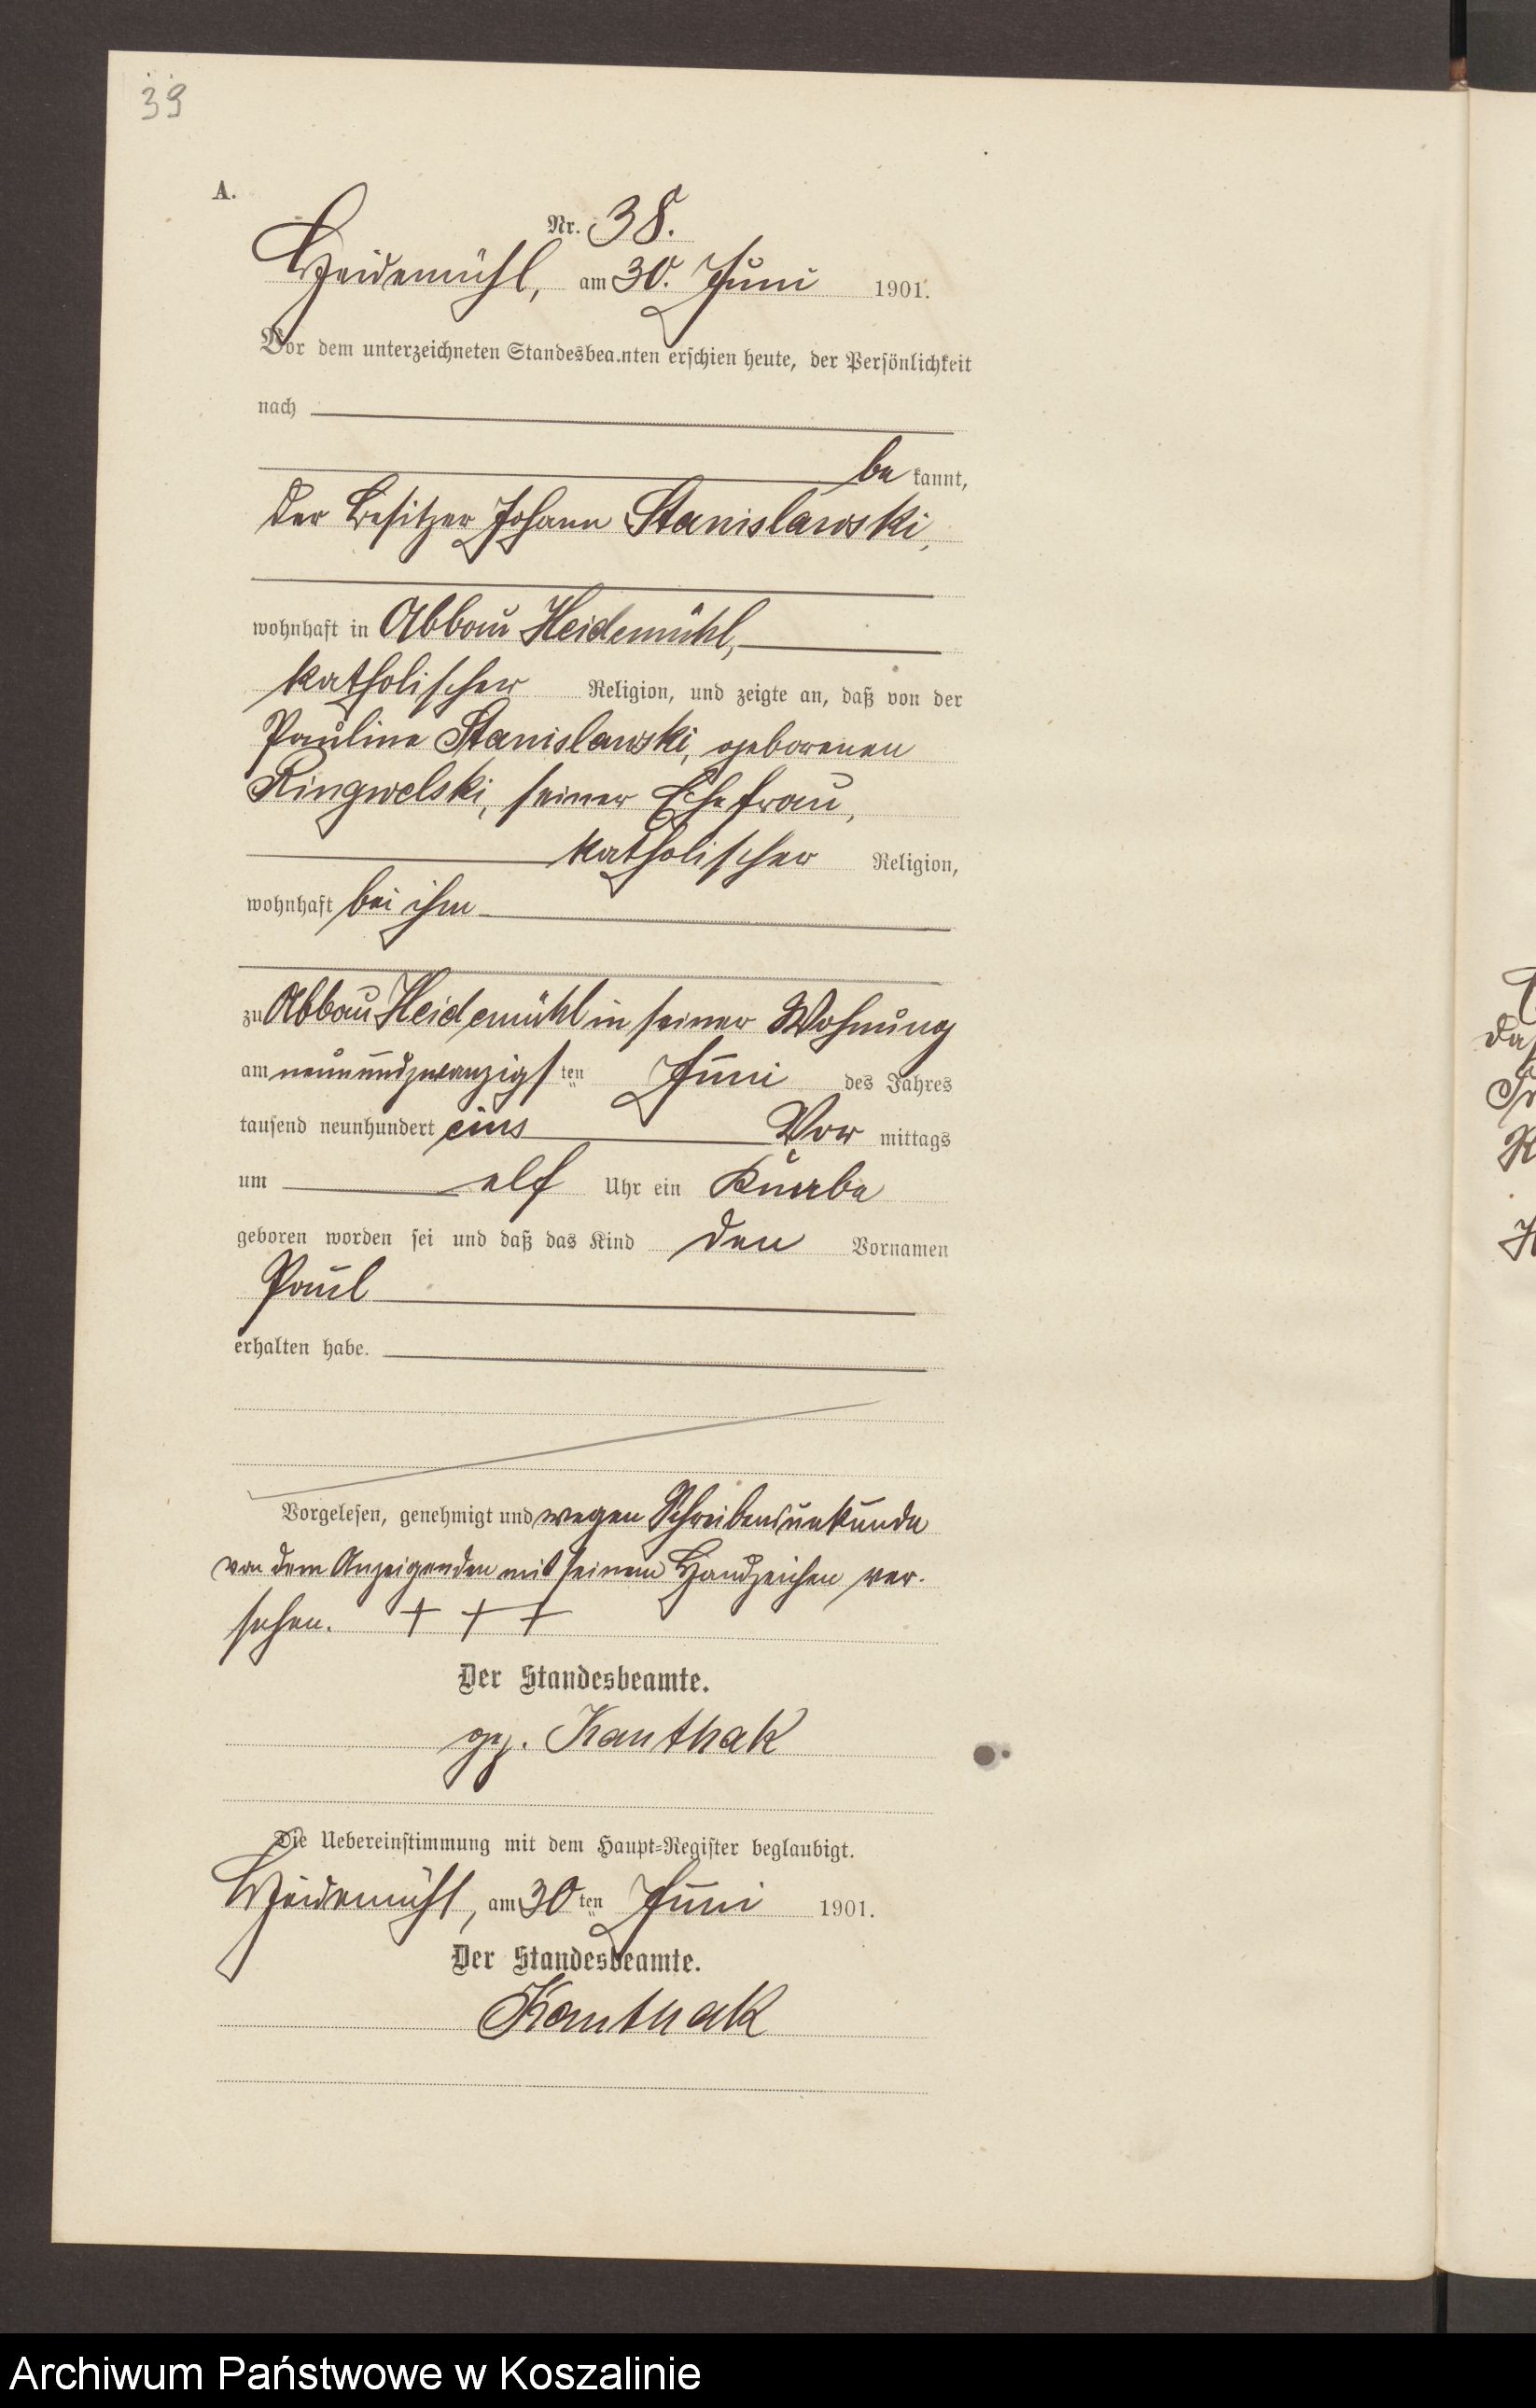 39
A.
Nr. 38.
Heidemühl, am 30. Juni 1901.
Vor dem unterzeichneten Standesbeamten erschien heute, der Persönlichkeit
nach
be kannt,
der Besitzer Johann Stanislawski,
wohnhaft in Abbau Heidemühl,
katholischer Religion, und zeigte an, daß von der
Pauline Stanislawski, geborenen
Ringwelski, seiner Ehefrau,
katholischer Religion,
wohnhaft bei ihm
zu Abbau Heidemühl in seiner Wohnung
am neunundzwanzigsten Juni des Jahres
tausend neunhundert eins Vor mittags
um elf Uhr ein Knabe
geboren worden sei und daß das Kind den Vornamen
Paul
erhalten habe.
Vorgelesen, genehmigt und wegen Schreibensunkunde
von dem Anzeigenden mit seinem Handzeichen ver-
sehen. + + +
Der Standesbeamte.
gez. Kanthak
Die Uebereinstimmung mit dem Haupt-Register beglaubigt.
Heidemühl, am 30ten Juni 1901.
Der Standesbeamte.
Kanthak
Archiwum Państwowe w Koszalinie